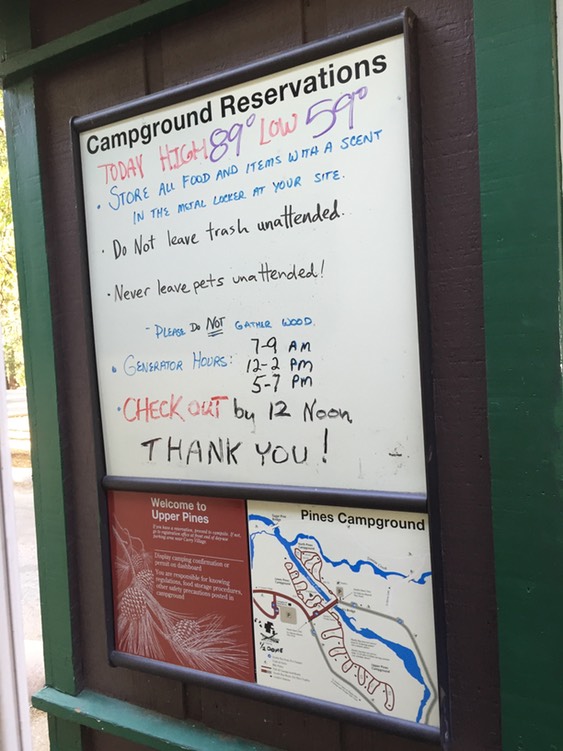 Campground Reservations
TODAY HIGH 89° LOW 59°
• STORE ALL FOOD AND ITEMS WITH A SCENT
IN THE METAL LOCKER AT YOUR SITE.
• Do Not leave trash unattended.
• Never leave pets unattended!
- PLEASE DO NOT GATHER WOOD.
• GENERATOR HOURS: 7-9 AM
12-2 PM
5-7 PM
• CHECK OUT by 12 Noon
THANK YOU!
Welcome to
Upper Pines
If you have a reservation, proceed to campsite. If not,
Display camping confirmation or
permit on dashboard
You are responsible for knowing
regulations, food storage procedures,
other safety precautions posted in
campground
Pines Campground
½ DOME